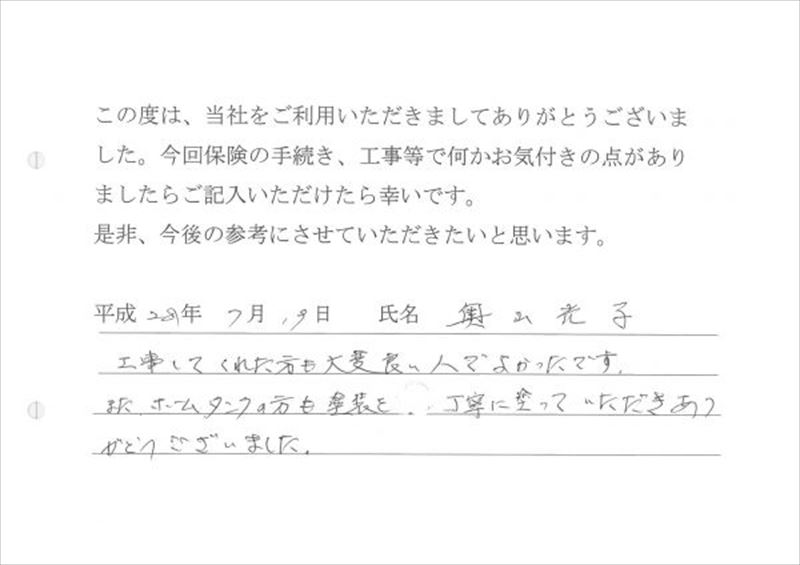 この度は、当社をご利用いただきましてありがとうございま
した。今回保険の手続き、工事等で何かお気付きの点があり
ましたらご記入いただけたら幸いです。
是非、今後の参考にさせていただきたいと思います。
平成 28年 7月 19日 氏名 奥山光子
工事してくれた方も大変良い人でよかったです。
また、ホームタンクの方も塗装を、丁寧に塗っていただきあり
がとうございました。